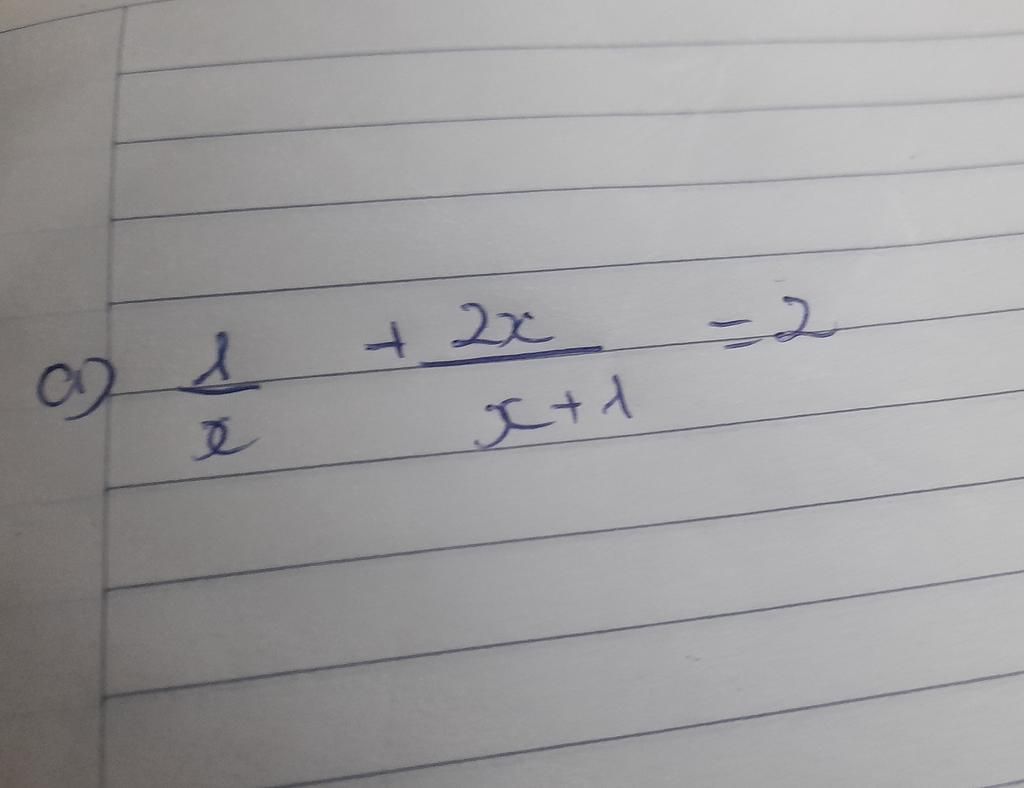 a) 1/x + 2x/x+1 = 2